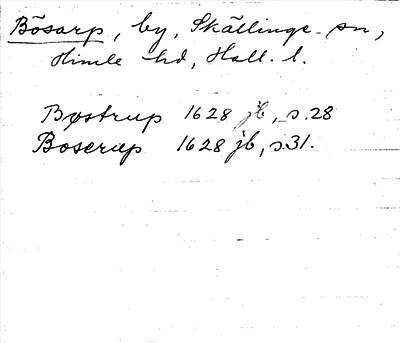 Bösarp, by, Skällinge sn,
Himle hd, Hall. l.
Bøstrup 1628 jb, s. 28
Boserup 1628 jb, s. 31.